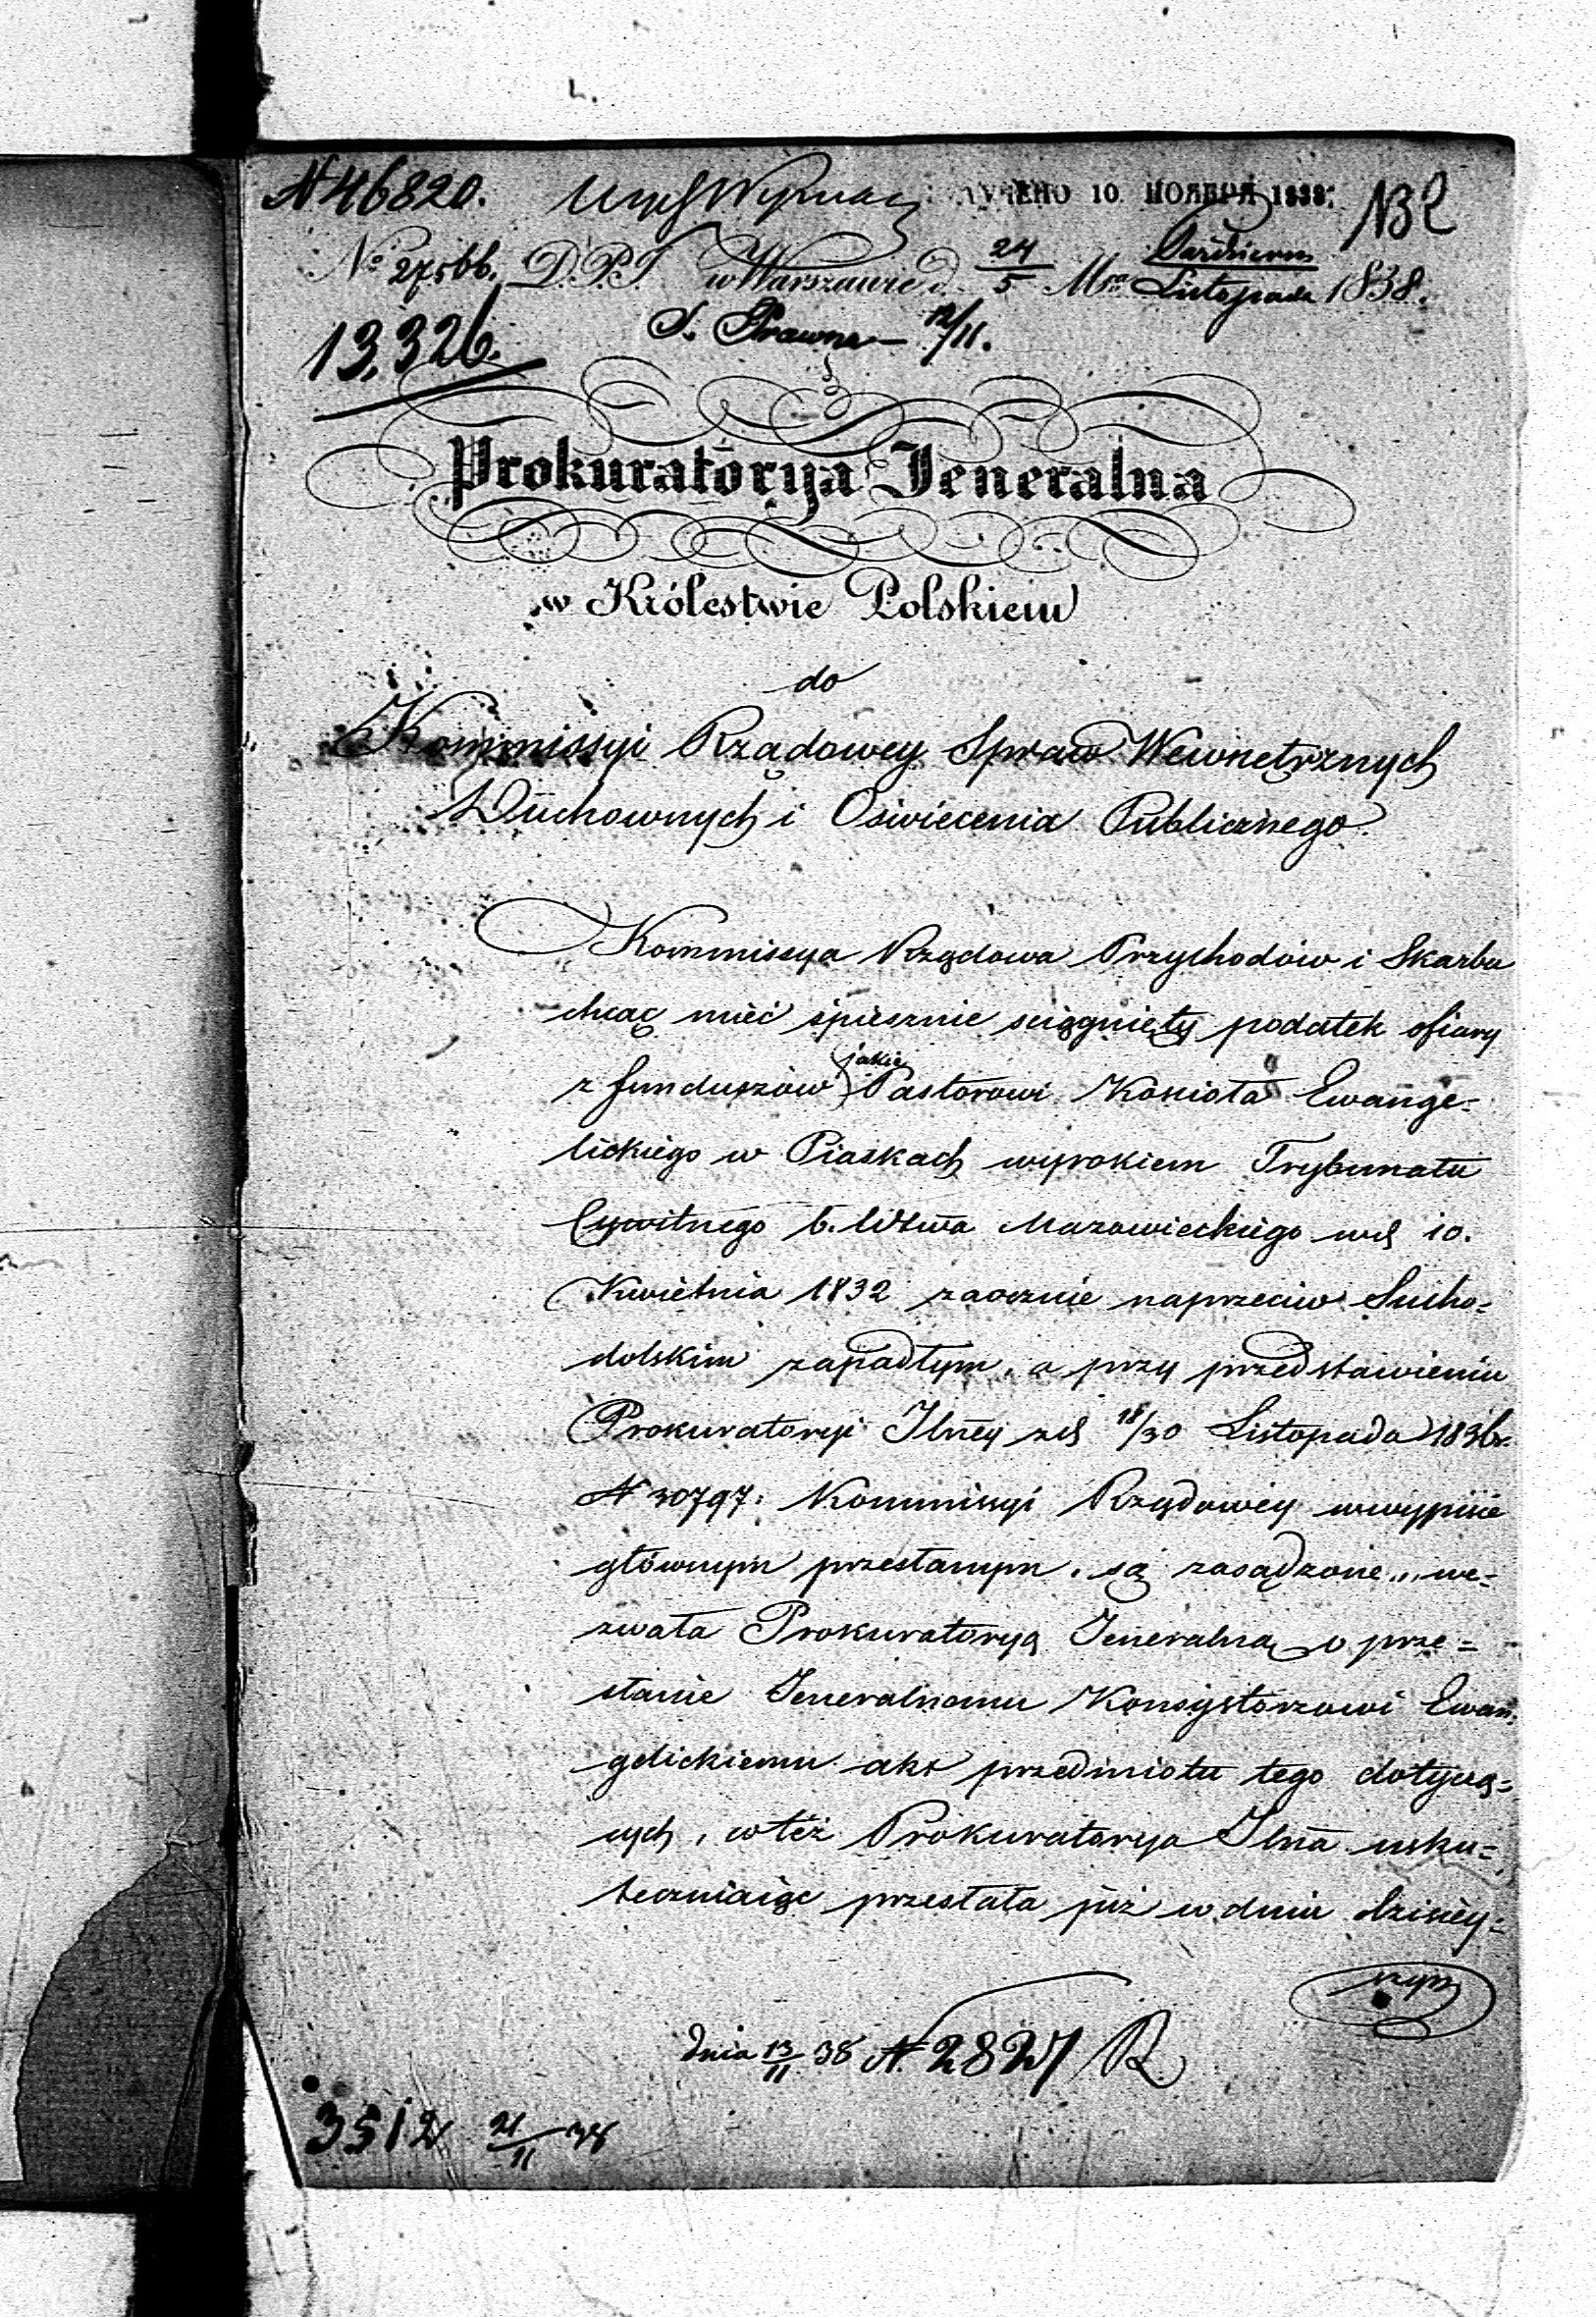 N 46820. ПОЛУЧЕНО 10. НОЯБРЯ 1838. N32
No 27566. D.P.J w Warszawie d. 24/5 Mca Październ Listopada 1838.
13,326. S. Prawna 12/11.
Prokuratorya Jeneralna
w Królestwie Polskiem
do
Kommissyi Rządowey Spraw Wewnętrznych
Duchownych i Oświecenia Publicznego.
Kommissya Rządowa Przychodów i Skarbu
chcąc mieć śpiesznie sciągnięty podatek ofiary
z funduszów jakie Pastorowi Kościoła Ewange=
lickiego w Piaskach wyrokiem Trybunału
Cywilnego b. Wdztwa Mazowieckiego w d 10.
Kwietnia 1832 zaocznie naprzeciw Sucho=
dolskim zapadłym, a przy przedstawieniu
Prokuratoryi Jlney z d 18/30 Listopada 1836 r.
N 30797. Kommissyi Rządowéy w wypisie
głównym przesłanym, są zasądzone, we=
zwała Prokuratoryą Jeneralną o prze=
słanie Jeneralnemu Konsystorzowi Ewan=
gelickiemu akt przedmiotu tego dotyczą=
cych, co téż Prokuratorya Jlna usku=
teczniaiąc przesłała już w dniu dzisiéy=
szym
dnia 13/11 38 N. 2827 R
3512 21/11 38